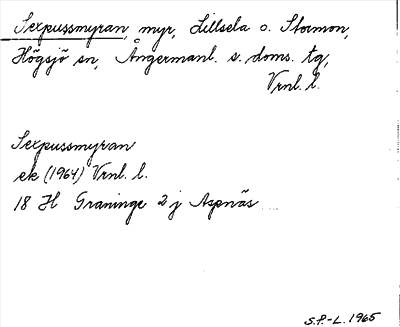 Sexpussmyran, myr, Lillsela o. Stormon,
Högsjö sn, Ångermanl. s. doms. tg,
Vrnl. l.
Sexpussmyran
ek (1964) Vrnl. l.
18 H Graninge 2 j Aspnäs
S.P.-L. 1965